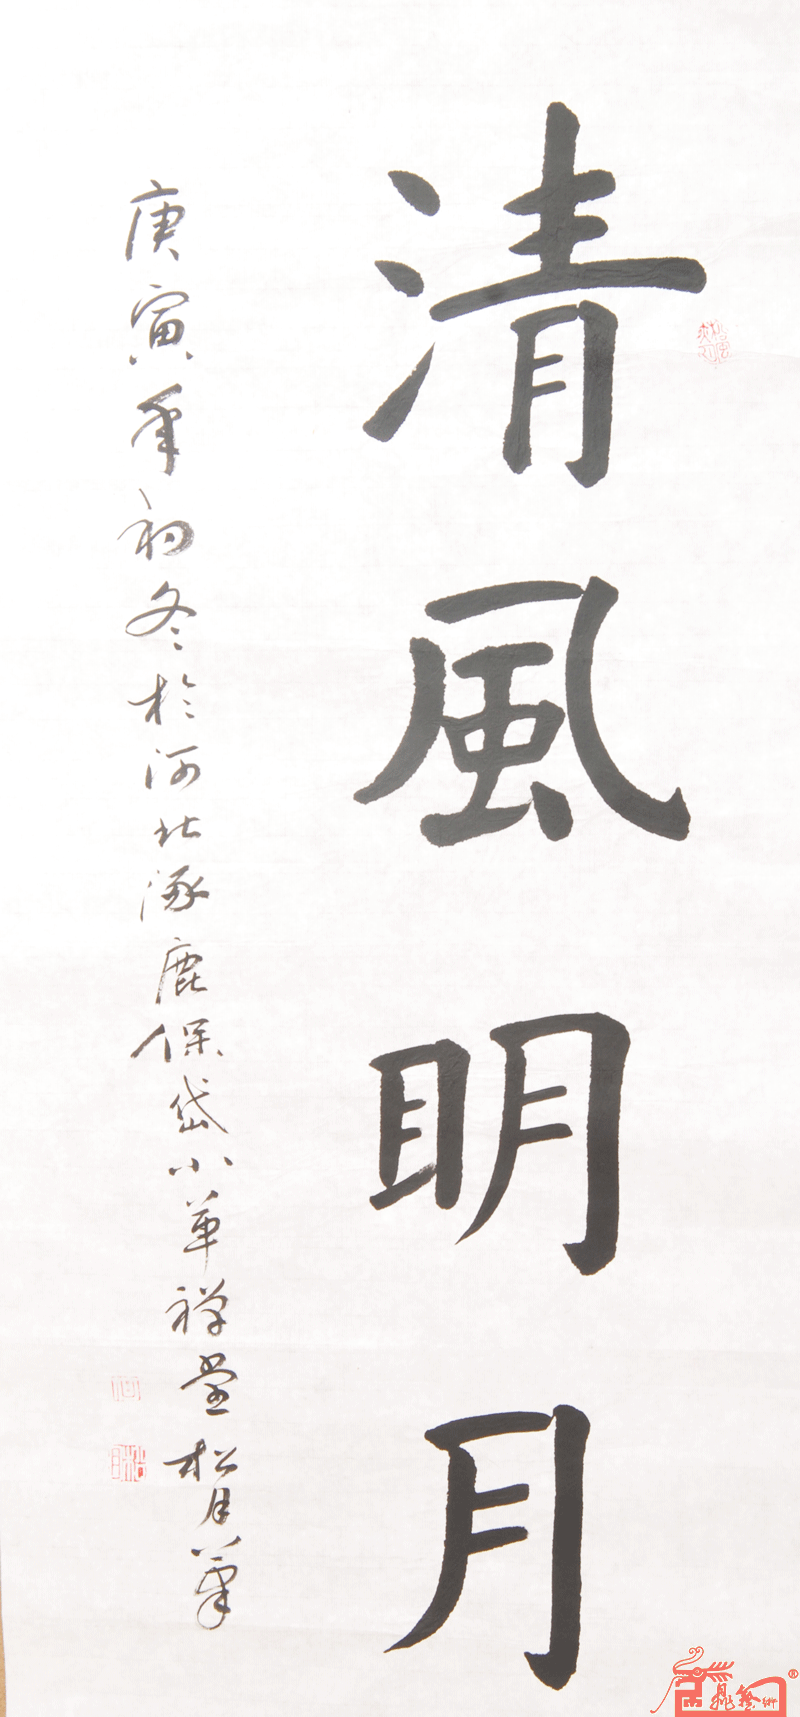 清風明月
庚寅年初冬於河北涿鹿保岱小草禅堂松月筆